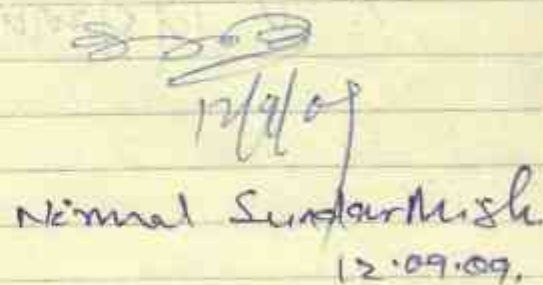 12/9/09
Nirmal Sundar Mish
12.09.09.